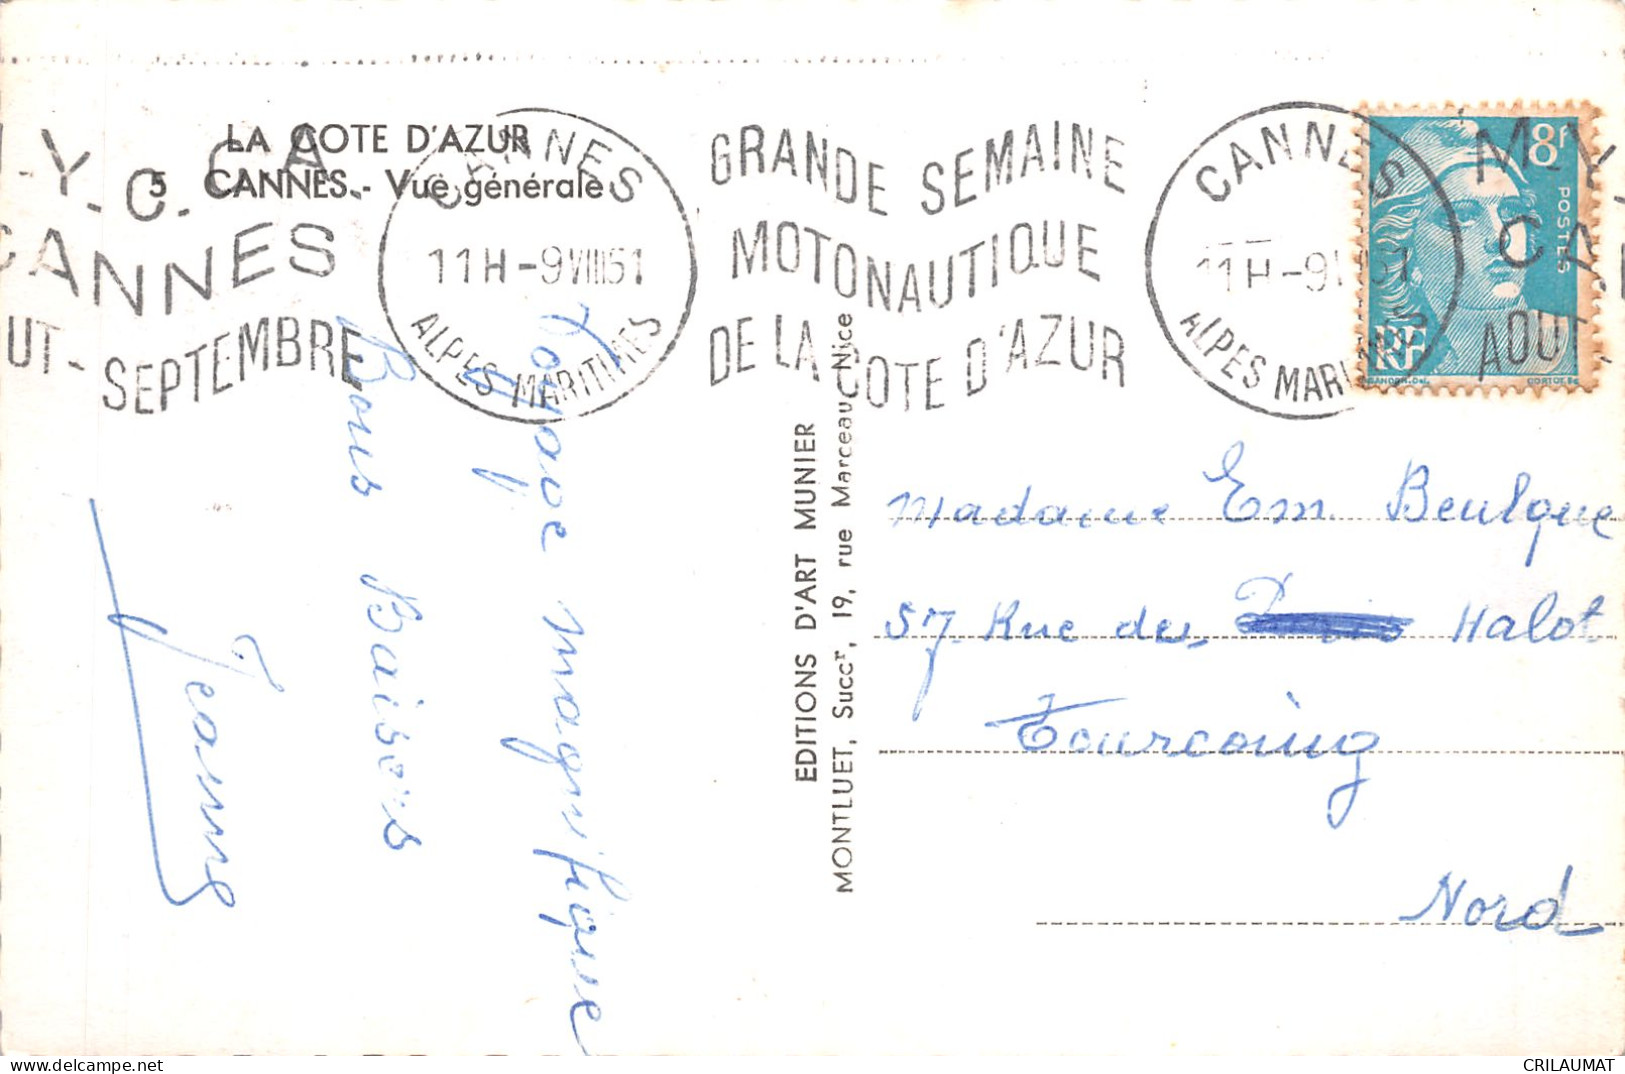 LA COTE D'AZUR
5 CANNES. - Vue générale
Y. C. C. A.
CANNES
UT - SEPTEMBRE
CANNES
11H - 9 VIII 51
ALPES MARITIMES
GRANDE SEMAINE
MOTONAUTIQUE
DE LA COTE D'AZUR
CANNES
11H - 9
ALPES MARITIMES
M.Y.
CA
AOUT -
8f
POSTES
RF
Voyage magnifique
Bons Baisers
Jeanne
EDITIONS D'ART MUNIER
MONTLUET, Succr, 19, rue Marceau, Nice
Madame Em. Beulque
57 Rue des Halot
Tourcoing
Nord
CRILAUMAT